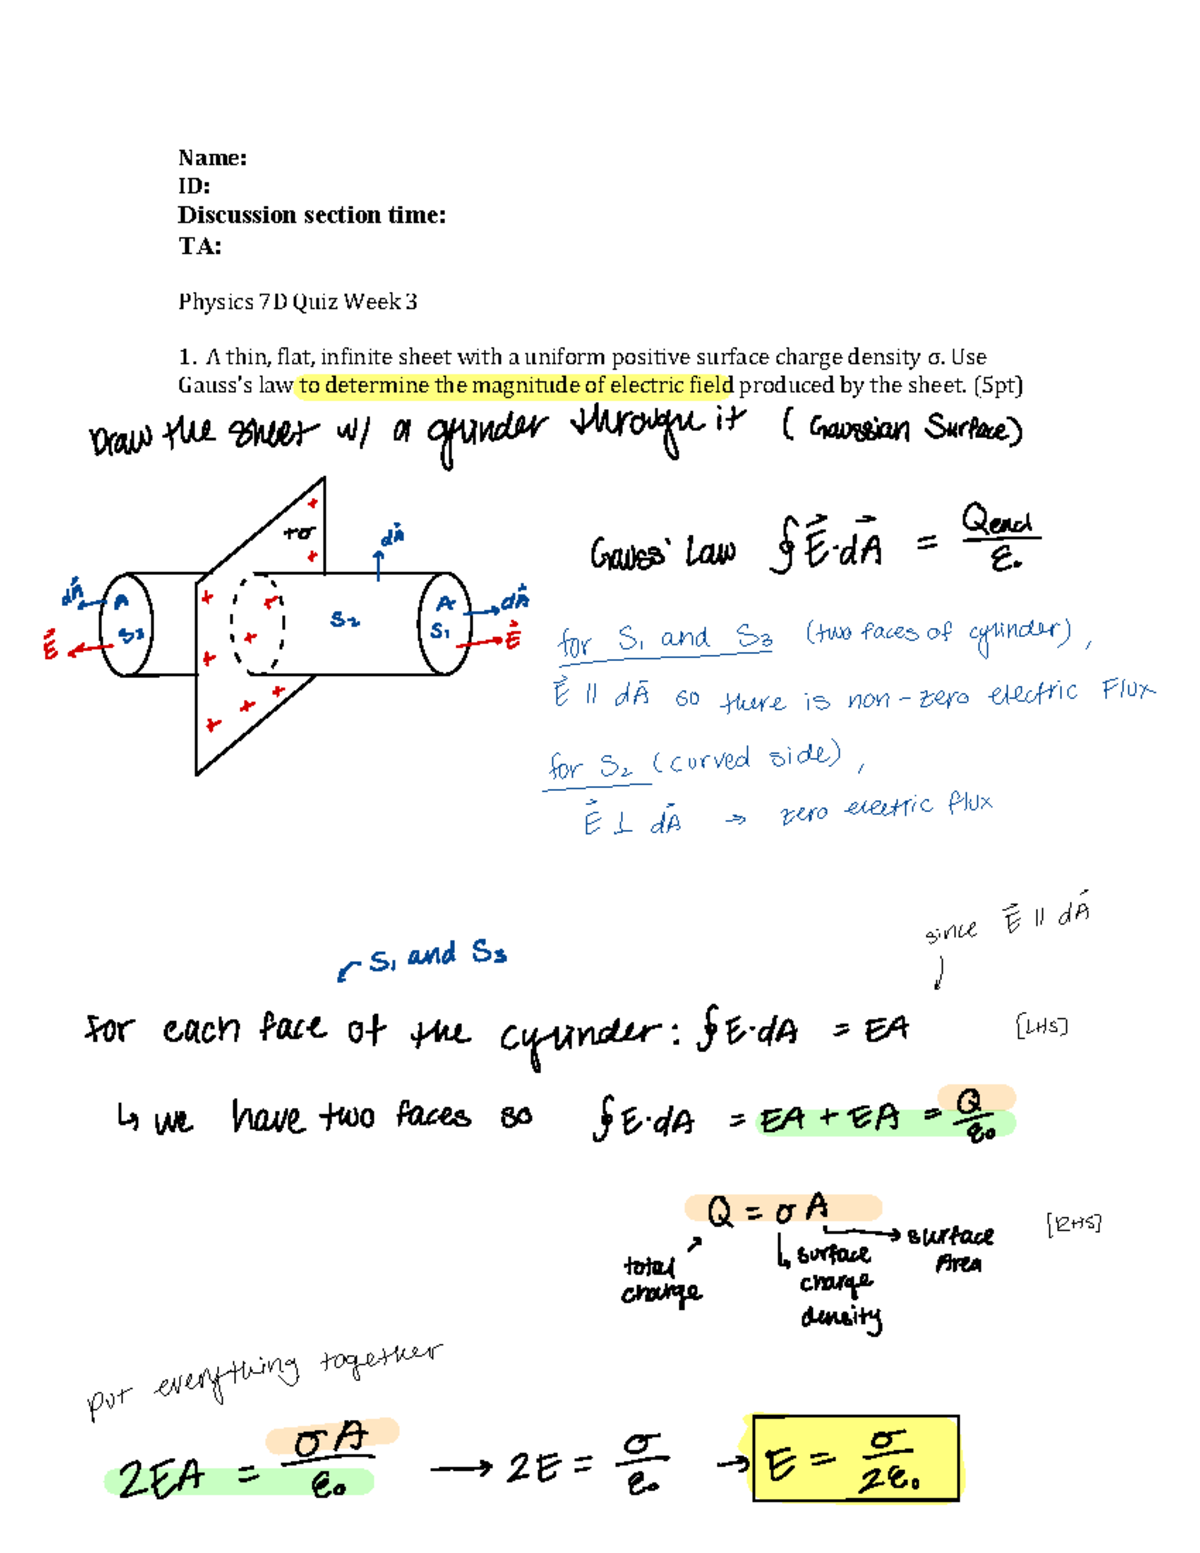 Name:
ID:
Discussion section time:
TA:
Physics 7D Quiz Week 3
1. A thin, flat, infinite sheet with a uniform positive surface charge density σ. Use
Gauss's law to determine the magnitude of electric field produced by the sheet. (5pt)
Draw the sheet w/ a cylinder through it ( Gaussian Surface)
+
+σ
+
dA⃗
dA⃗
A
S3
E⃗
+
+
+
+
+
+
+
S2
A
S1
dA⃗
E⃗
Gauss' Law ∮E⃗·dA⃗ = Qencl/ε₀
for S1 and S3 (two faces of cylinder),
E⃗ || dA⃗ so there is non-zero electric Flux
for S2 (curved side),
E⃗ ⊥ dA⃗ → zero electric flux
since E⃗ || dA⃗
S1 and S3
For each face of the cylinder: ∮E·dA = EA [LHS]
↳ we have two faces so ∮E·dA = EA + EA = Q/ε₀
Q = σA [RHS]
total charge
surface charge density
surface Area
put everything together
2EA = σA/ε₀ → 2E = σ/ε₀ → E = σ/2ε₀